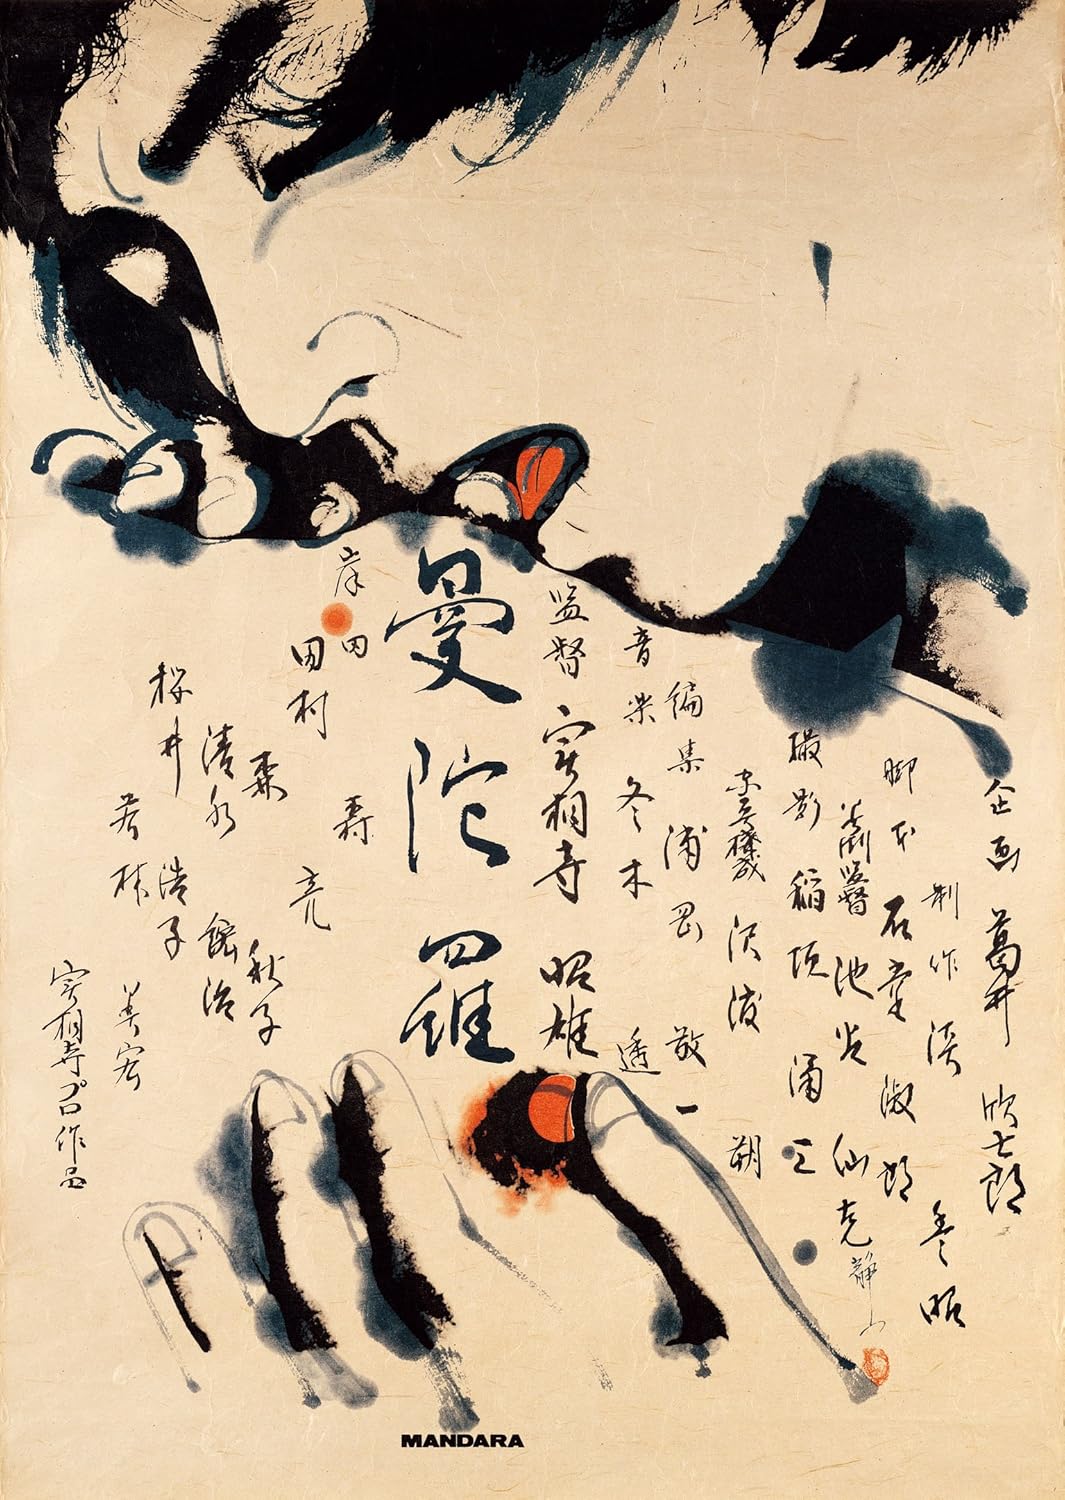 企画 葛井 欣士郎
制作 淡 豊昭
脚本 石堂 淑郎
美術監督 池谷 仙克
静山
撮影 稲垣 涌三
構成 沢渡 朔
編集 浦岡 敬一
音楽 冬木 透
監督 実相寺 昭雄
曼陀羅
岸田 森
田村 亮
森 秋子
清水 紘治
桜井 浩子
若林 美宏
実相寺プロ作品
MANDARA